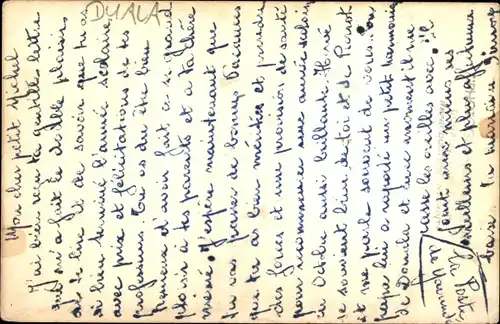 DUALA
Mon cher petit Michel
J'ai bien reçu ta gentille lettre
qui m'a fait de le plaisir
de te lire et de savoir que tu as
si bien terminé l'année scolaire
avec prix et félicitations de tes
professeurs. Tu as dû être bien
heureux d'avoir fait ce si grand
plaisir à tes parents et à ta chère
mémé. J'espère maintenant que
tu vas passer de bonnes vacances
que tu as bien méritées et prendre
des forces et une provision de santé
pour recommencer une année scolaire
en Octobre aussi brillante. Hervé
se souvient bien de toi et de
et me parle souvent de vous. Son
papa lui a rapporté un petit harmonica
de Douala et en ce moment il me
casse les oreilles avec.
meilleurs et plus affectueux
baisers. Ta marraine